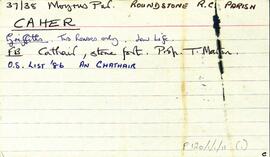 37/38 Moyrus Par. ROUNDSTONE R.C. PARISH
CAHER
Griffith. Two houses only. Law Life.
FB Cathair, stone fort. Prop. T. Martin.
O.S. LIST '86 AN CHATHAIR
P120/1/11 (1)
c